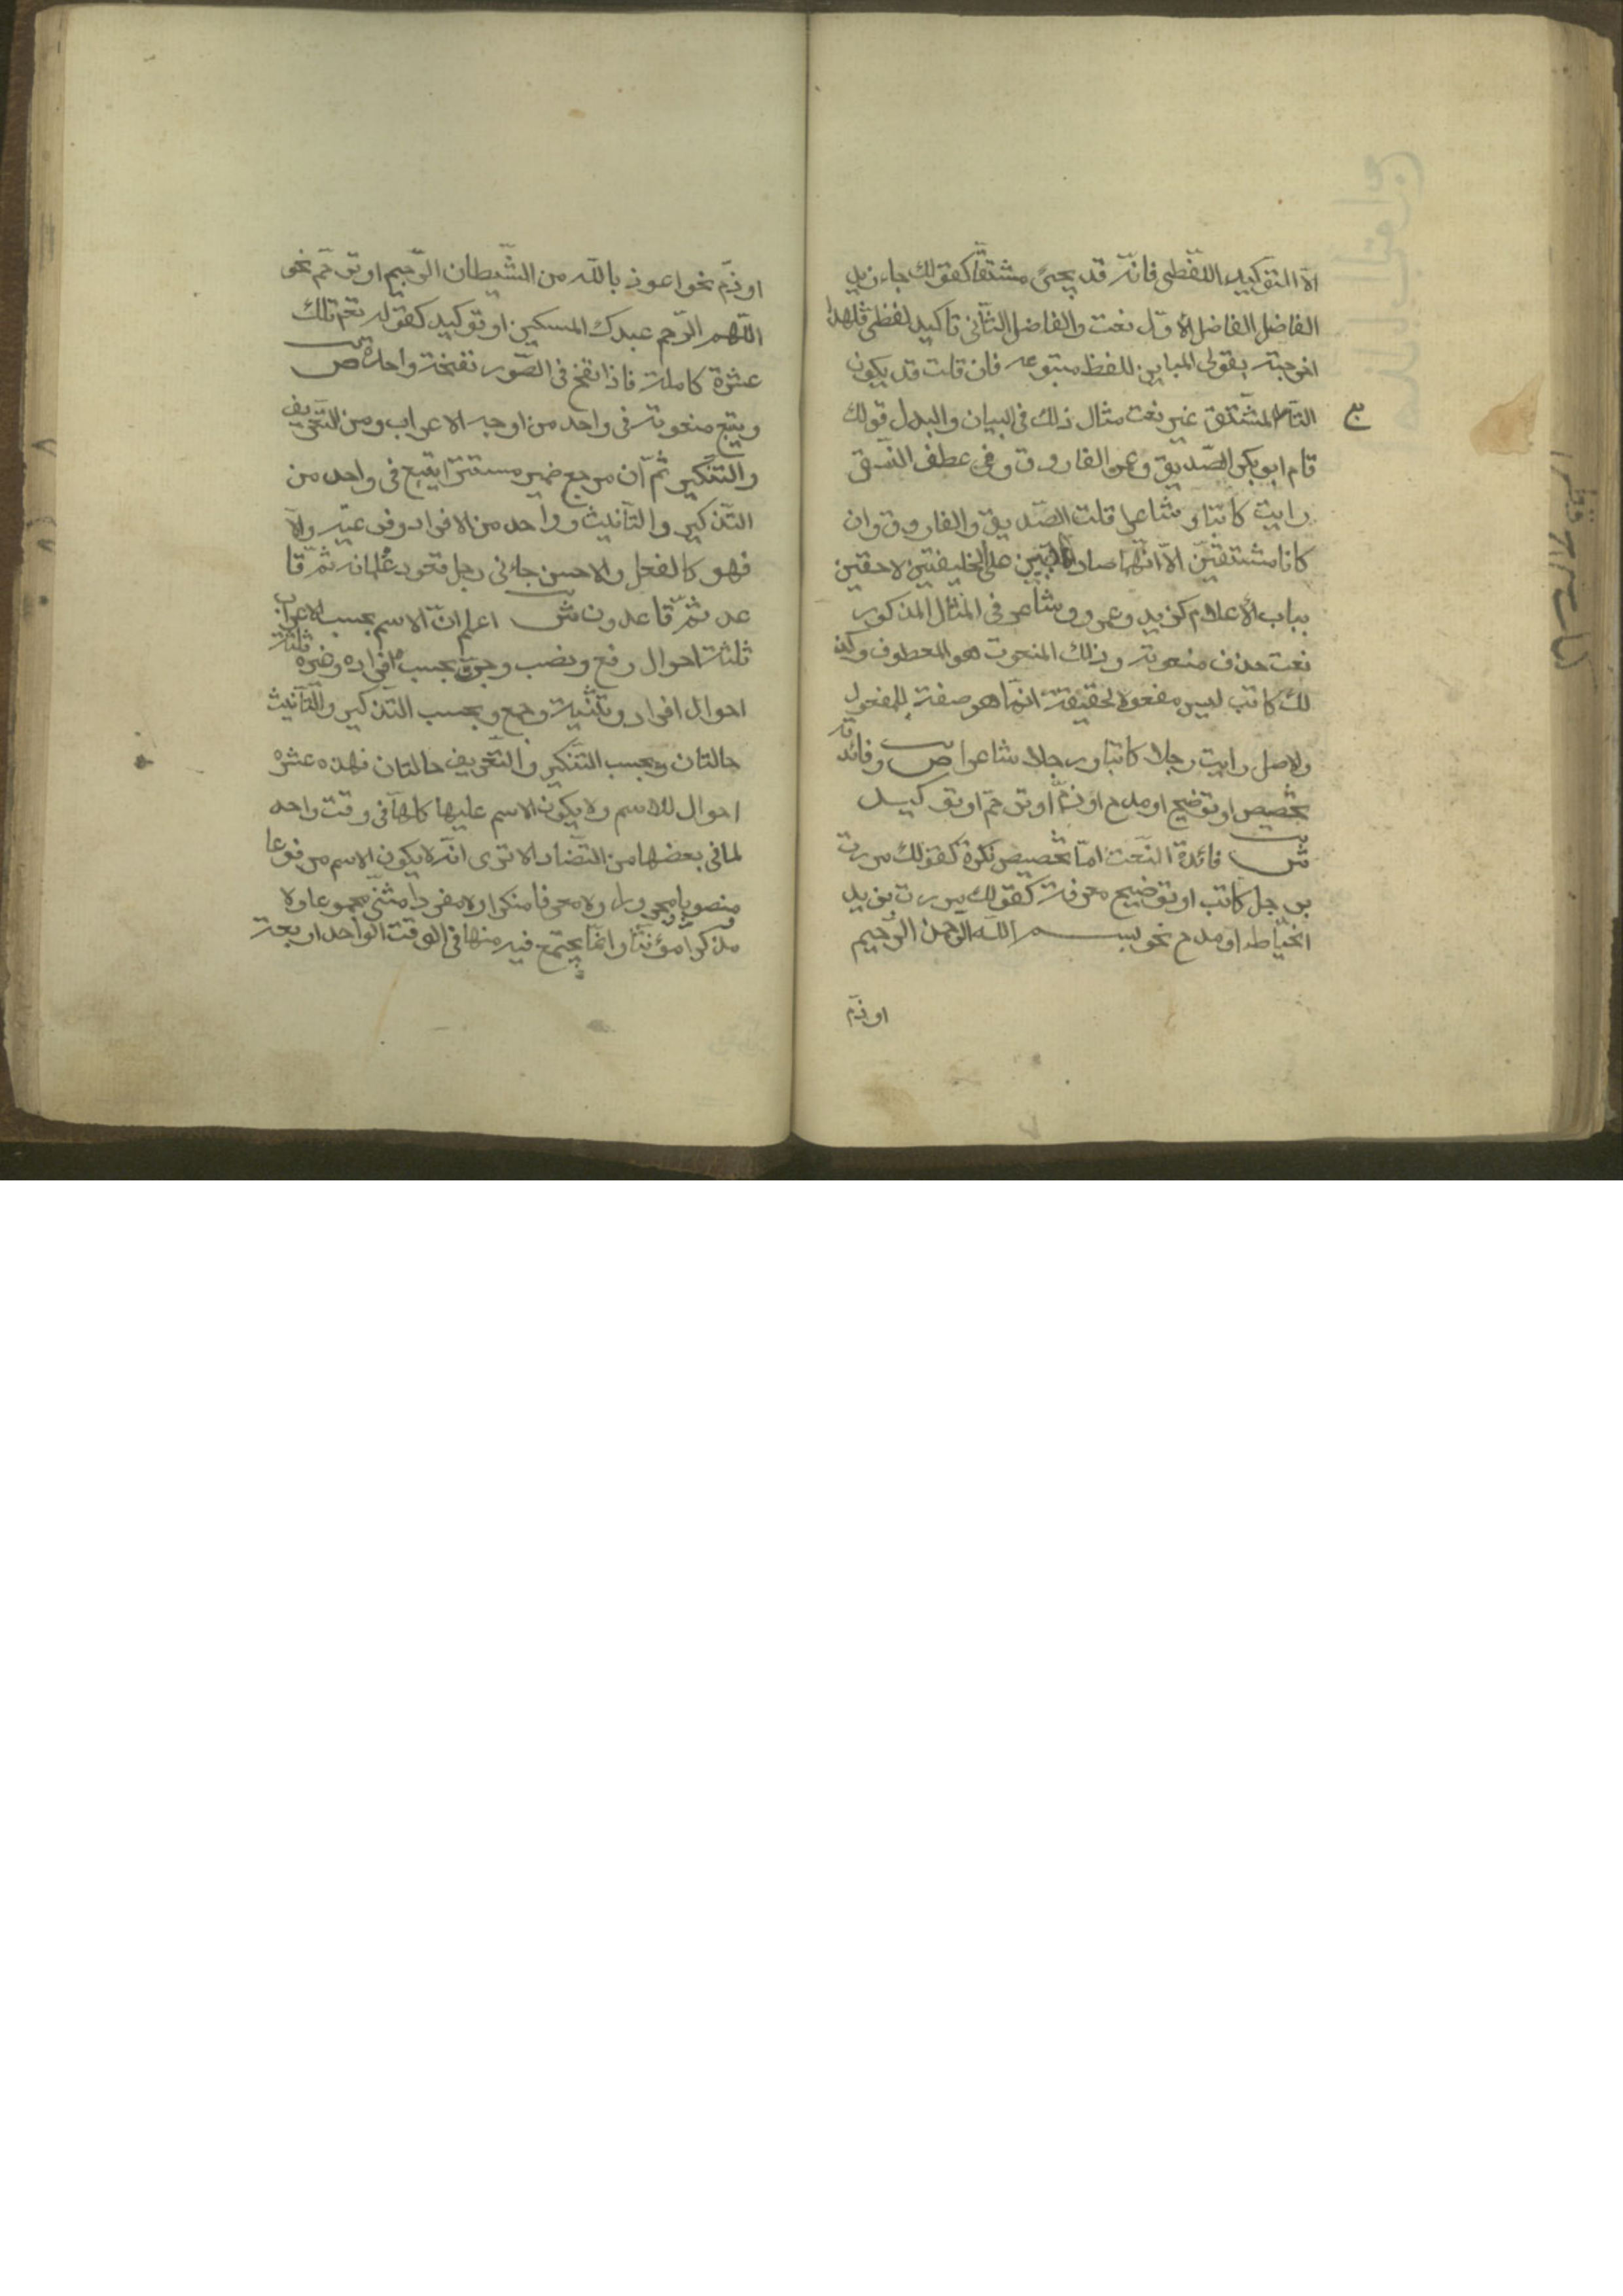 الا التوكيد اللفظى فانه قد يجئ مشتقا كقولك جاء زيد
الفاضل الفاضل الاول نعت والفاضل الثانى تاكيد لفظى فلهذا
اخرجته بقولى المباين للفظ متبوعه فان قلت قد يكون
التابع المشتق غير نعت مثال ذلك فى البيان والبدل قولك
قام ابو بكر الصديق وعمر الفاروق وفى عطف النسق
رايت كاتبا وشاعرا قلت الصديق والفاروق وان
كانا مشتقين الا انهما صارا لقبين على الخليفتين لاحقين
بباب الاعلام كزيد وعمرو وشاعر فى المثال المذكور
نعت حذف منعوته وذلك المنعوت هو المعطوف وكذ
لك كاتب ليس مفعولا لحقيقة انما هو صفة للمفعول
والاصل رايت رجلا كاتبا ورجلا شاعرا ص وفائدته
تخصيص او توضيح او مدح او ذم او ترحم او توكيد
ش فائدة النعت اما تخصيص نكرة كقولك مررت
برجل كاتب او توضيح معرفة كقولك مررت بزيد
الخياط او مدح نحو بسم الله الرحمن الرحيم
او ذم
او ذم نحو اعوذ بالله من الشيطان الرجيم او ترحم نحو
اللهم ارحم عبدك المسكين او توكيد كقوله تعم تلك
عشرة كاملة فاذا نفخ فى الصور نفخة واحدة ص
ويتبع منعوته فى واحد من اوجه الاعراب ومن التعريف
والتنكير ثم ان مرجع ضمير مستترا يتبع فى واحد من
التذكير والتانيث وواحد من الافراد وفرعيه والا
فهو كالفعل والاحسن جائنى رجل قعود غلمانه ثم قا
عد ثم قاعدون ش اعلم ان الاسم بحسب الاعراب
ثلثة احوال رفع ونصب وجر وبحسب افراده وغيره ثلثة
احوال افراد وتثنية وجمع وبحسب التذكير والتانيث
حالتان وبحسب التنكير والتعريف حالتان فهذه عشره
احوال للاسم ولا يكون الاسم عليها كلها فى وقت واحد
لما فى بعضها من التضاد الا ترى انه لا يكون الاسم مرفوعا
منصوبا مجرورا ولا معرفا منكرا ولا مفردا مثنى مجموعا ولا
مذكرا مؤنثا وانما يجتمع فيه منها فى الوقت الواحد اربعة